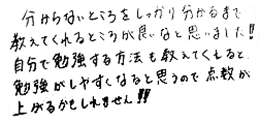 分からないところをしっかり分かるまで
教えてくれるところが良いなと思いました!
自分で勉強する方法も教えてくもると、
勉強がしやすくなると思うので点数が
上がるかもしれません!!